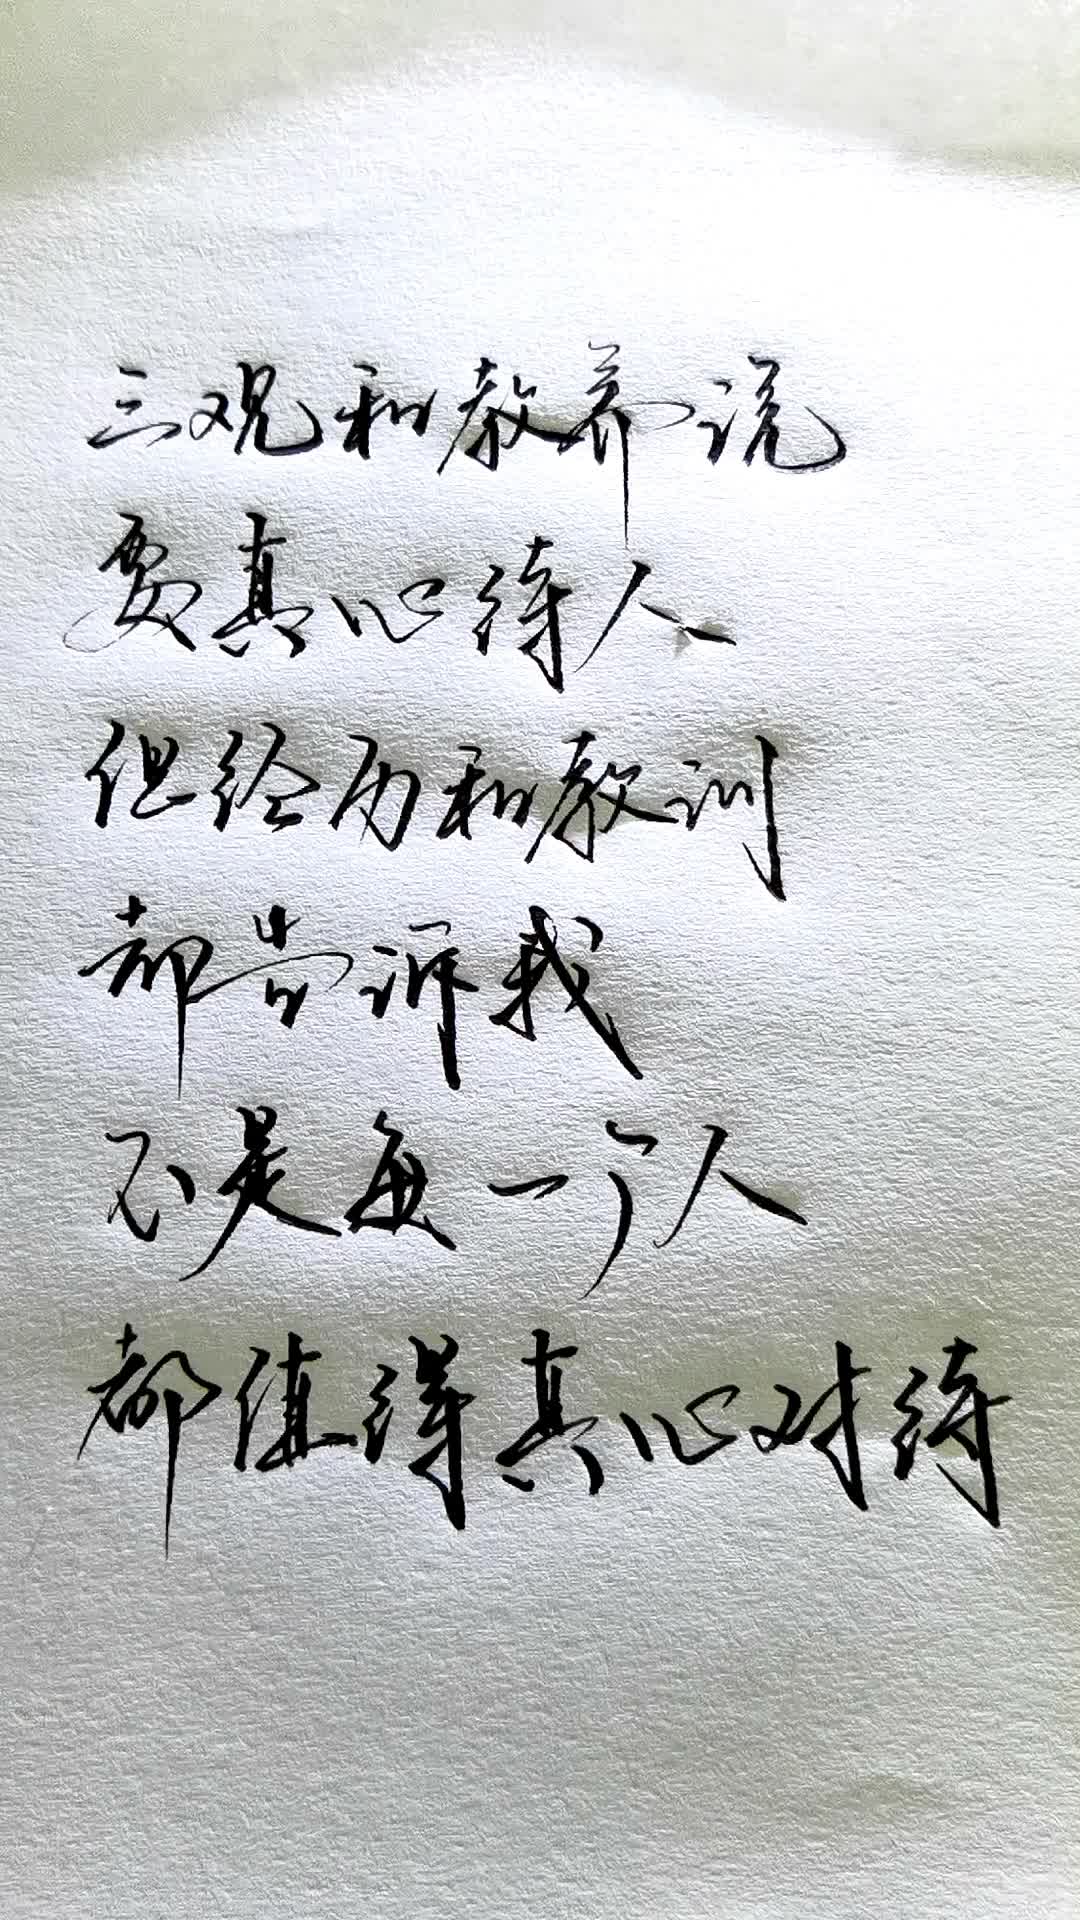 三观和教养说
要真心待人
但经历和教训
都告诉我
不是每一个人
都值得真心对待